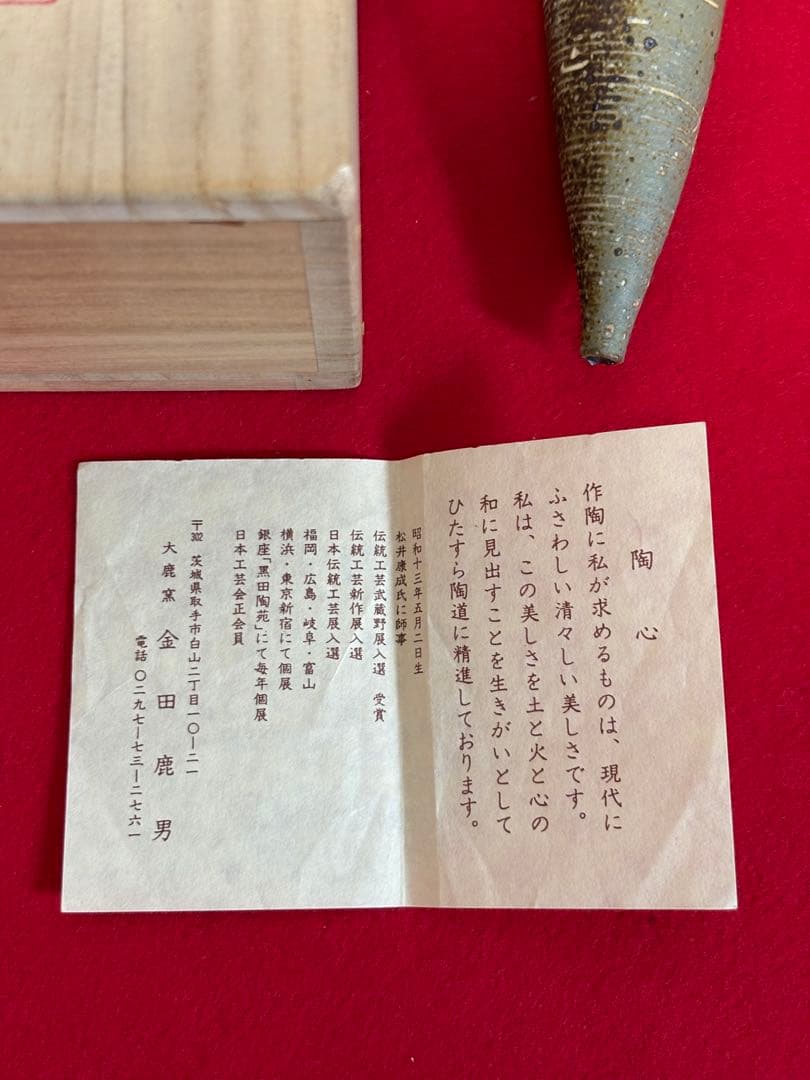 陶心
作陶に私が求めるものは、現代に
ふさわしい清々しい美しさです。
私は、この美しさを土と火と心の
和に見出すことを生きがいとして
ひたすら陶道に精進しております。
昭和十三年五月二日生
松井康成氏に師事
伝統工芸武蔵野展入選 受賞
伝統工芸新作展入選
日本伝統工芸展入選
福岡・広島・岐阜・富山
横浜・東京新宿にて個展
銀座「黒田陶苑」にて毎年個展
日本工芸会正会員
〒302 茨城県取手市白山二丁目一〇―二一
大鹿窯 金田鹿男
電話〇二九七―七三―二七六一